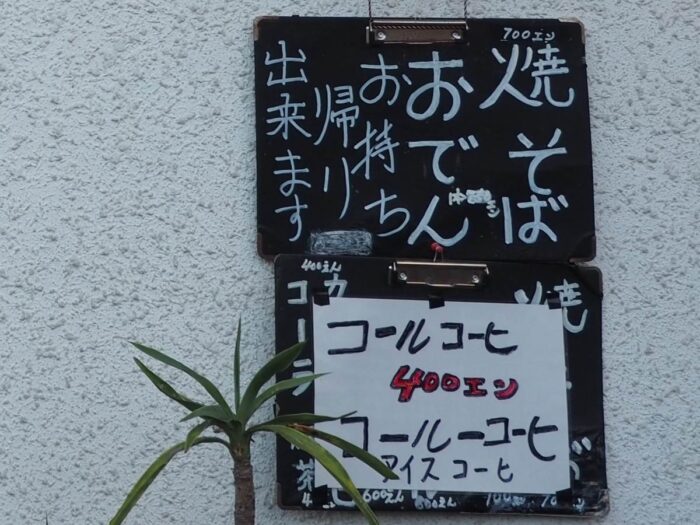 700エン
焼そば
おでん
お持ち
帰り
出来ます
400えん
コーラ
焼
コールコーヒ
400エン
コールーコーヒ
アイスコーヒ
茶
600えん